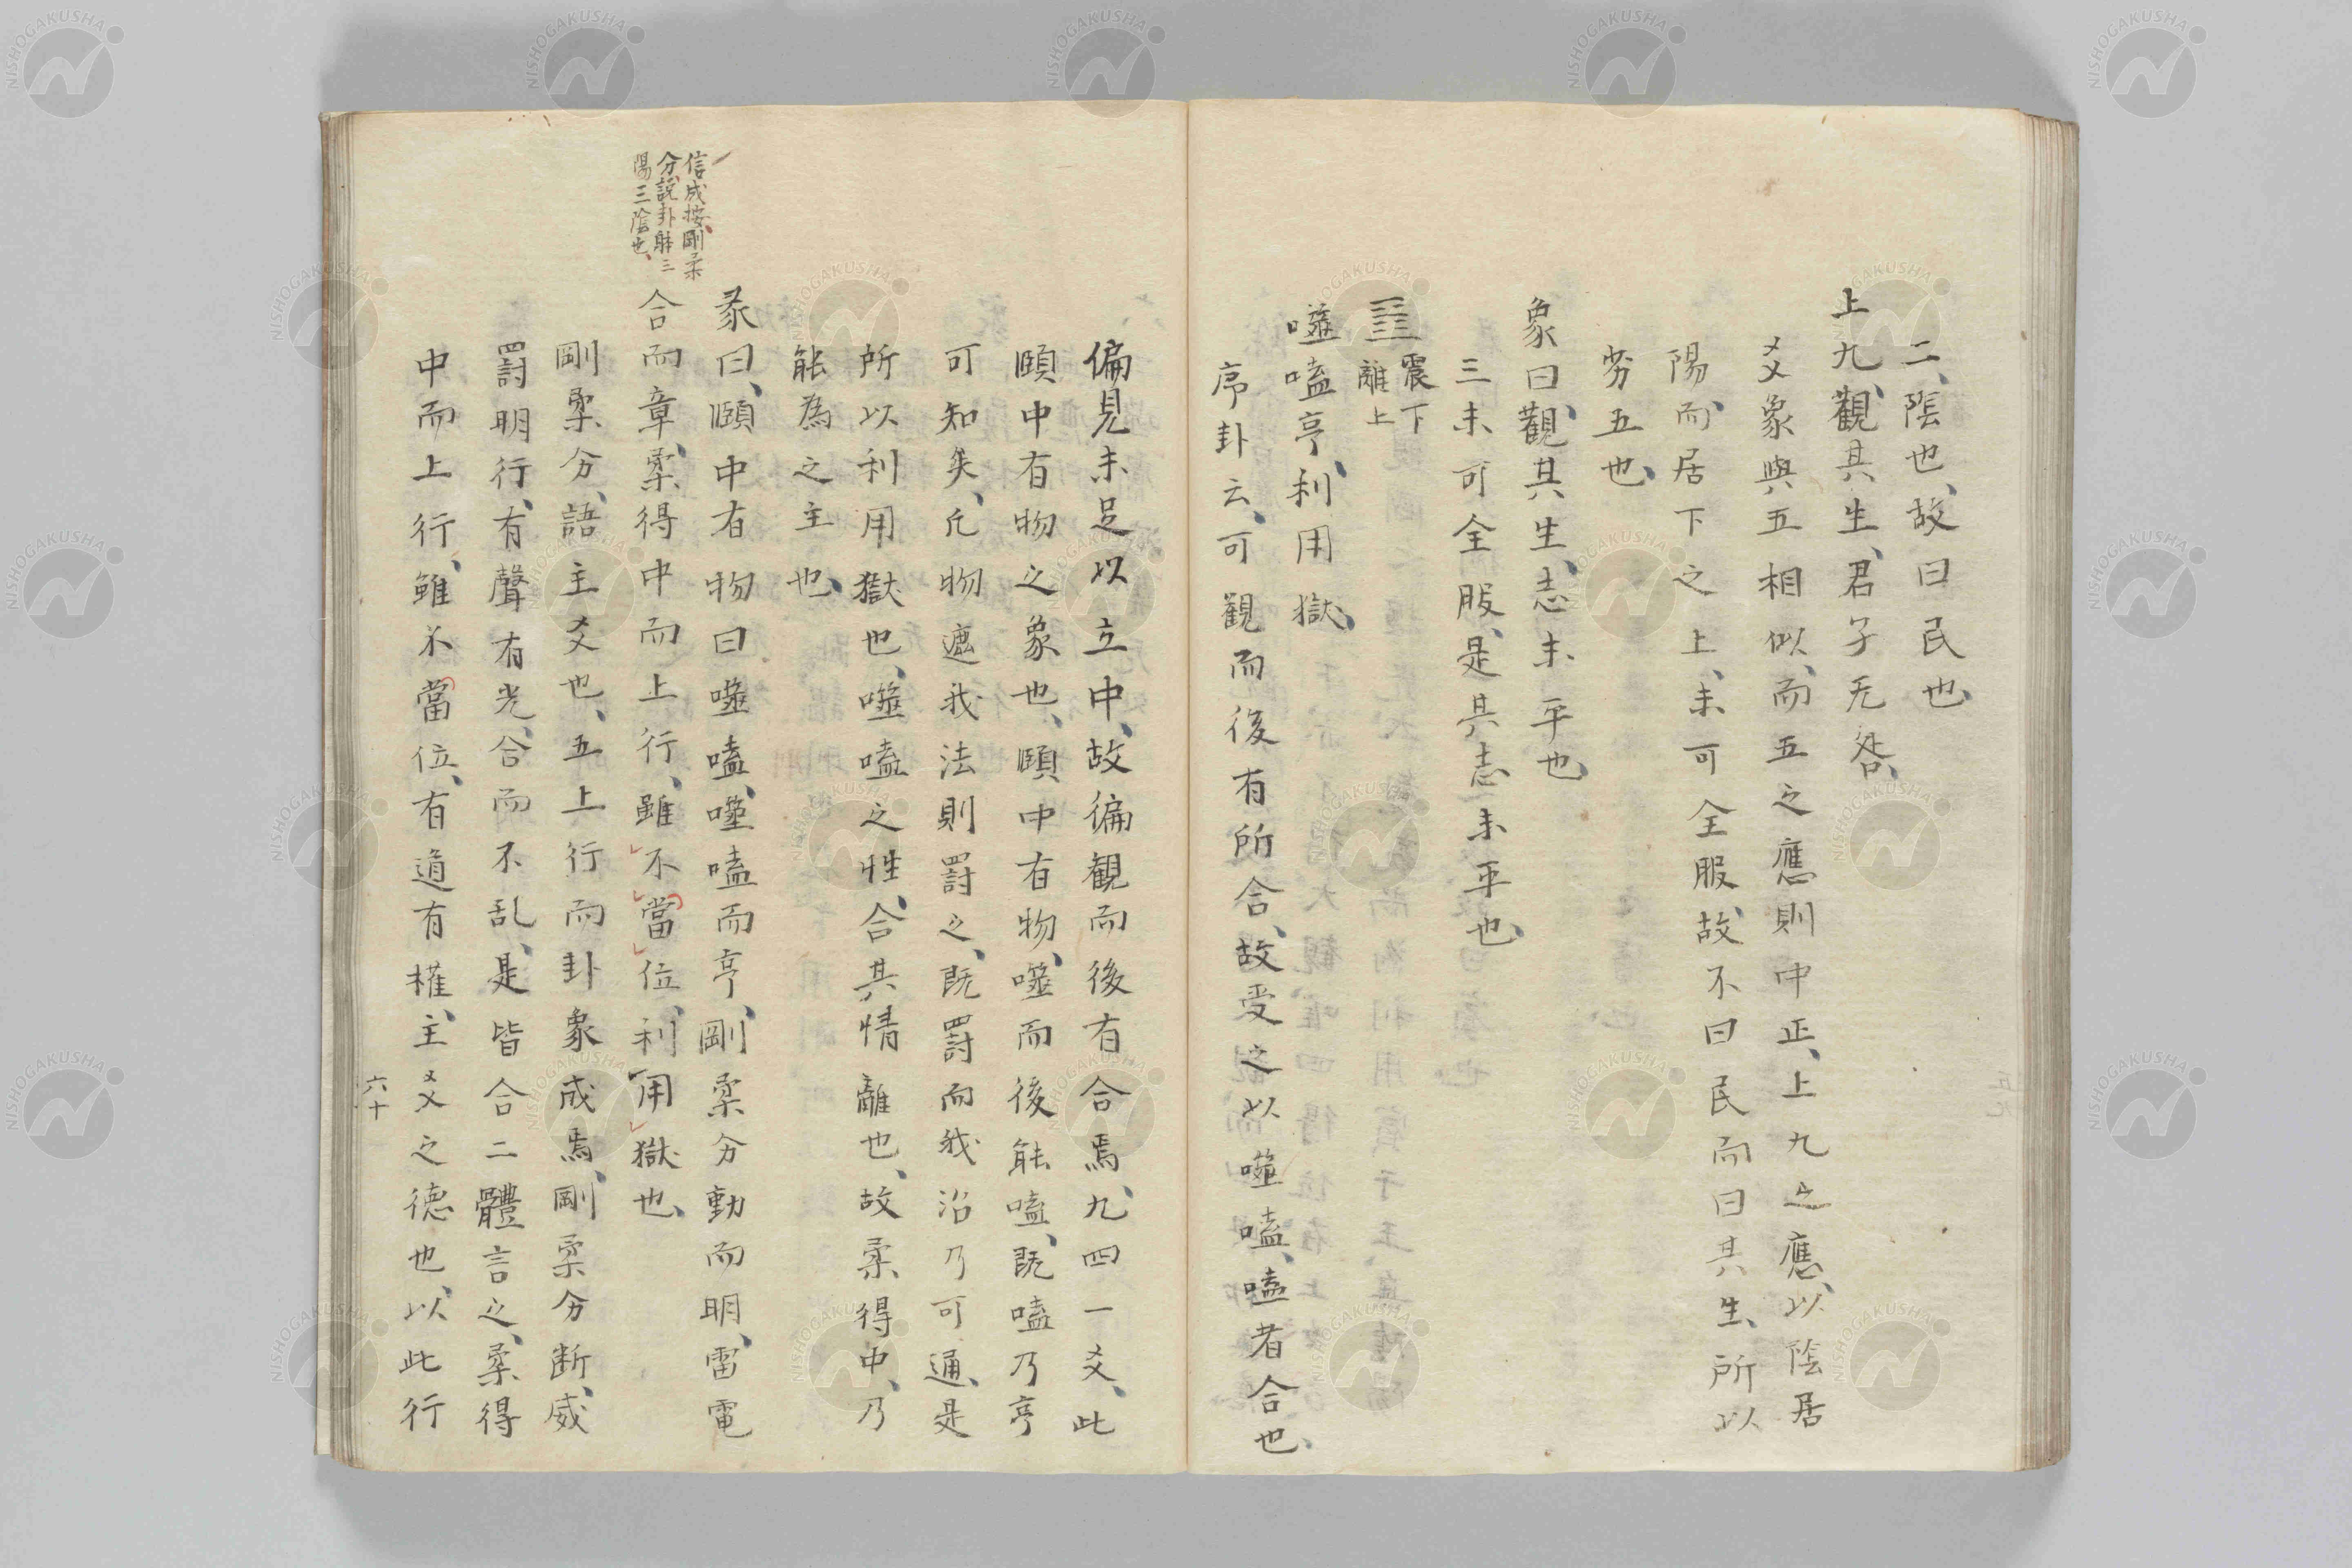 二、陰也、故曰民也、
上九、觀其生、君子无咎、
爻象與五相似、而五之應則中正、上九之應、以陰居
陽、而居下之上、未可全服、故不曰民而曰其生、所以
劣五也、
象曰、觀其生、志未平也、
三未可全服、是其志未平也、
䷔ 震下
離上
噬嗑亨、利用獄、
序卦云、可観而後有所合、故受之以噬嗑、嗑者合也、
偏見未足以立中、故徧観而後有合焉、九四一爻、此
頤中有物之象也、頤中有物、噬而後能嗑、既嗑乃亨
可知矣、凡物遮我法則罰之、既罰而我治乃可通、是
所以利用獄也、噬嗑之性、合其情離也、故柔得中、乃
能為之主也、
彖曰、頤中有物曰噬嗑、噬嗑而亨、剛柔分動而明、雷電
合而章、柔得中而上行、雖不當位、利用獄也、
剛柔分、語主爻也、五上行而卦象成焉、剛柔分断、威
罰明行、有聲有光、合而不乱、是皆合二體言之、柔得
中而上行、雖不當位、有道有権、主爻之德也、以此行
信成按、剛柔
分、説卦躰三
陽三陰也、
六十
NISHOGAKUSHA